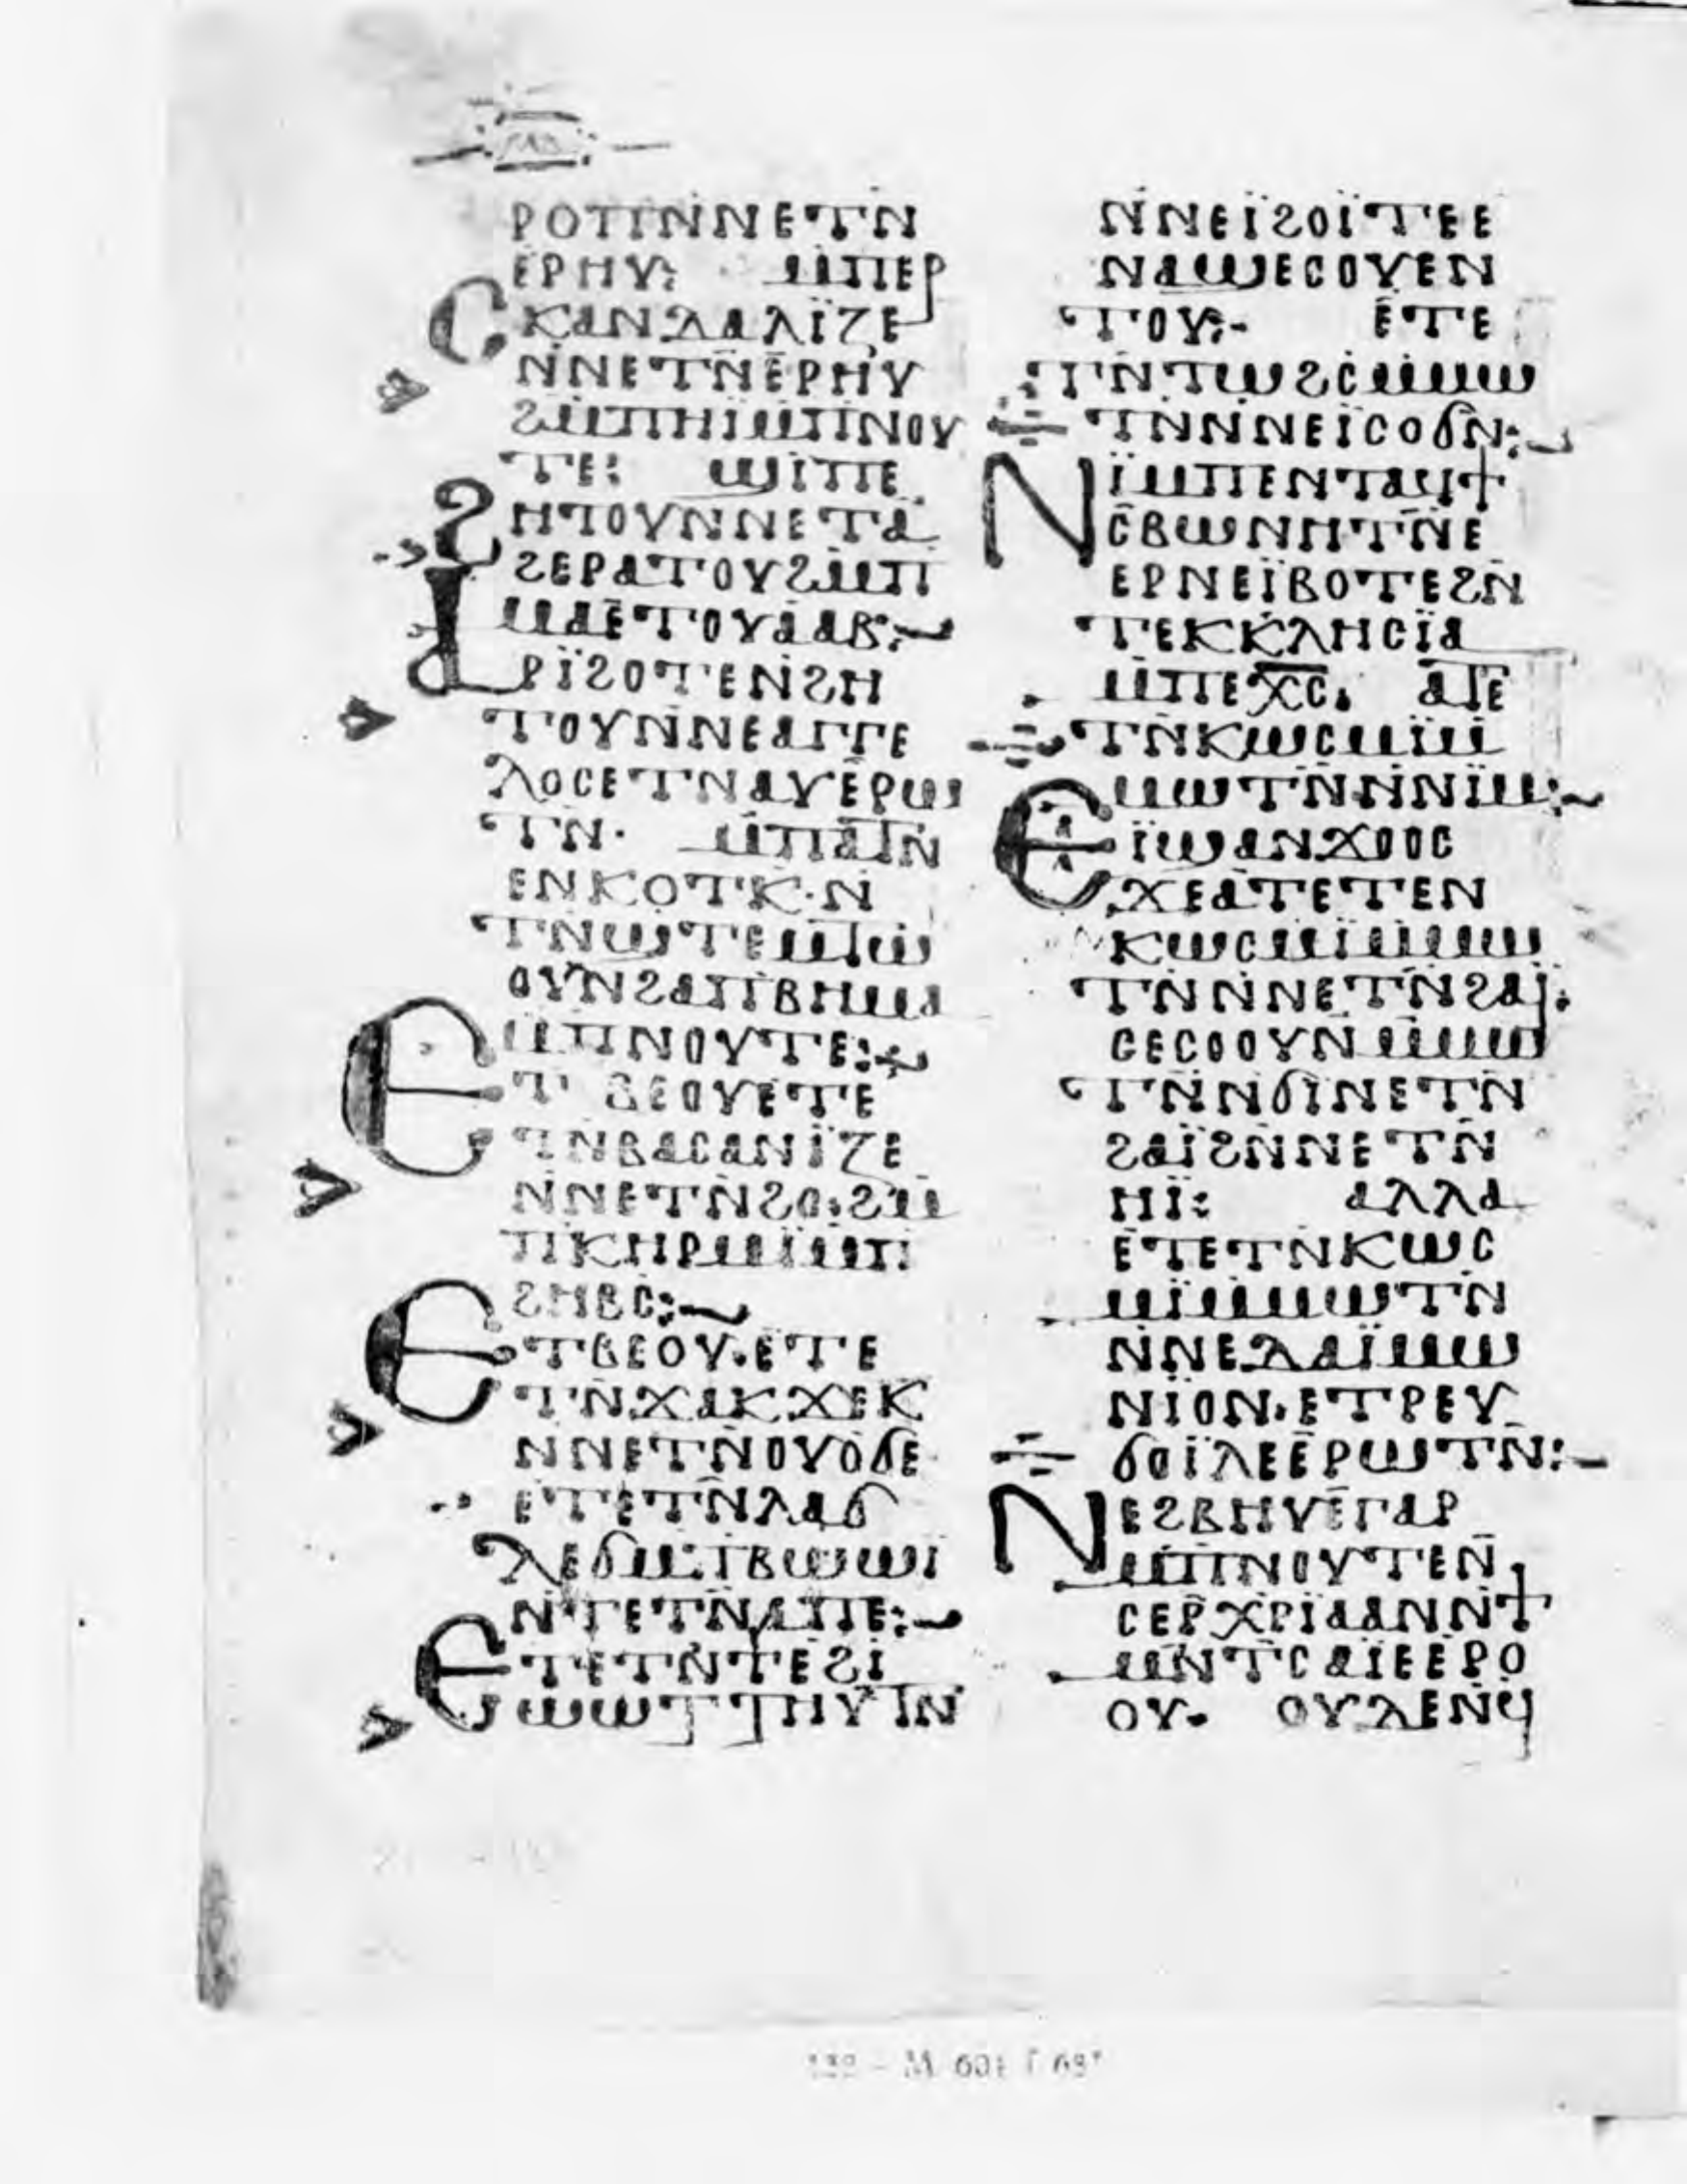 ⲣⲟⲡⲛ̇ⲛⲉⲧⲛ̇
ⲉⲣⲏⲩ: ⲙ̇ⲡⲉⲣ
ⲥⲕⲁⲛⲇⲁⲗⲓ̈ⲍⲉ
ⲛ̇ⲛⲉⲧⲛ̄ⲉ̄ⲣⲏⲩ
ϩⲙ̇ⲡⲏⲓ̈ⲙ̇ⲡⲛⲟⲩ
ⲧⲉ: ϣⲓ̈ⲡⲉ
ϩⲏⲧⲟⲩⲛ̇ⲛⲉⲧⲁ
ϩⲉⲣⲁⲧⲟⲩϩⲙ̇ⲡ
ⲙⲁⲉ̄ⲧⲟⲩⲁⲁⲃ:~
ⲁⲣⲓ̈ϩⲟⲧⲉⲛ̇ϩⲏ
ⲧⲟⲩⲛ̇ⲛⲉⲁⲅⲅⲉ
ⲗⲟⲥⲉⲧⲛⲁⲩⲉ̄ⲣⲱ
ⲧⲛ̇· ⲙ̇ⲡⲁⲧⲛ̄
ⲉⲛⲕⲟⲧⲕ·ⲛ̇
ⲧⲛ̄ϣⲧⲉⲙ̇ⲧⲱ
ⲟⲩⲛϩⲁⲡⲃⲏⲙⲁ
ⲙ̇ⲡⲛⲟⲩⲧⲉ:~
ⲉⲧⲃⲉⲟⲩⲉ̄ⲧⲉ
ⲧⲛ̄ⲃⲁⲥⲁⲛⲓ̈ⲍⲉ
ⲛ̇ⲛⲉⲧⲛ̄ϩⲟ:ϩⲙ̇
ⲡⲕⲏⲣⲙⲓ̈ⲙ̇ⲡ
ϩⲏⲃⲥ̇:~
ⲉⲧⲃⲉⲟⲩ·ⲉ̄ⲧⲉ
ⲧⲛ̄ϫⲁⲕϫⲉⲕ
ⲛ̇ⲛⲉⲧⲛ̄ⲟⲩⲟ̄ϭⲉ
ⲉⲧⲉⲧⲛ̄ⲗⲁϭ
ⲗⲉϭⲙ̇ⲡⲃⲱⲱⲓ̇
ⲛ̇ⲧⲉⲧⲛ̄ⲁⲡⲉ:~
ⲉⲧⲉⲧⲛ̄ϯⲉ̄ϩⲓ̈
ⲱⲱⲧⲧⲏⲩⲧⲛ̄
ⲛ̇ⲛⲉⲓ̈ϩⲟⲓ̈ⲧⲉⲉ
ⲛⲁϣⲉⲥⲟⲩⲉⲛ
ⲧⲟⲩ:- ⲉ̄ⲧⲉ
ⲧⲛ̄ⲧⲱϩⲥ̇ⲙ̇ⲙⲱ
ⲧⲛ̇ⲛ̇ⲛⲉⲓ̈ⲥⲟϭⲛ̄:~
ⲛⲓ̈ⲙ̇ⲡⲉⲛⲧⲁϥϯ
ⲥ̄ⲃⲱⲛⲏⲧⲛ̄ⲉ
ⲉⲣⲛⲉⲓ̈ⲃⲟⲧⲉϩⲛ̄
ⲧⲉⲕⲕ̇ⲗⲏⲥⲓ̈ⲁ
ⲙ̇ⲡⲉⲭ̅ⲥ̅· ⲁⲧⲉ
ⲧⲛ̄ⲕⲱⲥⲙ̇ⲓ̈ⲙ̇
ⲙⲱⲧⲛ̄ⲛ̇ⲛⲓ̈ⲙ:~
ⲉⲓ̈ϣⲁⲛϫⲟⲟⲥ
ϫⲉⲁⲧⲉⲧⲉⲛ
ⲕⲱⲥⲙ̇ⲓ̈ⲙ̇ⲙⲱ
ⲧⲛ̇ⲛ̇ⲛⲉⲧⲛ̄ϩⲁⲓ̈:
ⲥⲉⲥⲟⲟⲩⲛ̄ⲙ̇ⲙⲱ
ⲧⲛ̄ⲛϭⲓⲛⲉⲧⲛ̄
ϩⲁⲓ̈ϩⲛ̄ⲛⲉⲧⲛ̄
ⲏⲓ̈: ⲁⲗⲗⲁ
ⲉ̄ⲧⲉⲧⲛ̄ⲕⲱⲥ
ⲙⲓ̈ⲙ̇ⲙⲱⲧⲛ̇
ⲛ̇ⲛⲉⲇⲁⲓ̈ⲙⲱ
ⲛⲓ̈ⲟⲛ·ⲉⲧⲣⲉⲩ
ϭⲟⲓ̈ⲗⲉⲉ̄ⲣⲱⲧⲛ̄:~
ⲛⲉϩⲃⲏⲩⲉ̄ⲅⲁⲣ
ⲙ̇ⲡⲛⲟⲩⲧⲉⲛ̄
ⲥⲉⲣ̄ⲭⲣⲓ̈ⲁⲁⲛⲛ̇ϯ
ⲙⲛ̄ⲧⲥⲁⲓ̈ⲉⲉ̄ⲣⲟ
ⲟⲩ· ⲟⲩⲇⲉⲛ̇ϥ